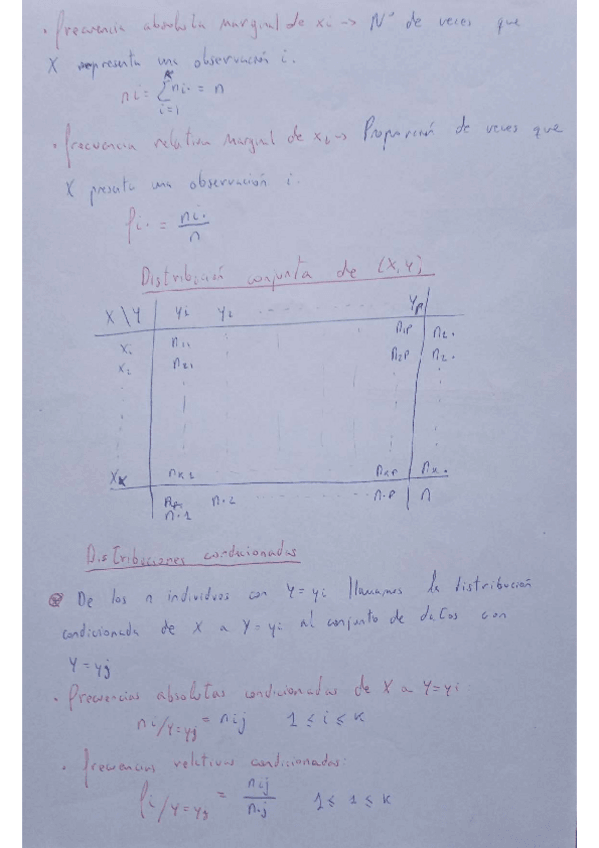 · frecuencia absoluta marginal de xi → Nº de veces que
X representa una observación i.
ni = Σ ni. = n
k
i=1
· frecuencia relativa marginal de xi → Proporción de veces que
X presenta una observación i.
fi. = ni. / n
Distribución conjunta de (X,Y)
X \ Y | yi y2 ........ yp |
xi | n11 n1p | n1.
x2 | n21 n2p | n2.
xk | nk1 nkp | nk.
n.1 n.2 ........ n.p | n
Distribuciones condicionadas
De los n individuos con Y = yi llamamos la distribución
condicionada de X a Y = yi al conjunto de datos con
Y = yj
· frecuencias absolutas condicionadas de X a Y = yi
ni/Y=yj = nij 1 ≤ i ≤ k
· frecuencias relativas condicionadas:
fi/Y=yj = nij / n.j 1 ≤ 1 ≤ k